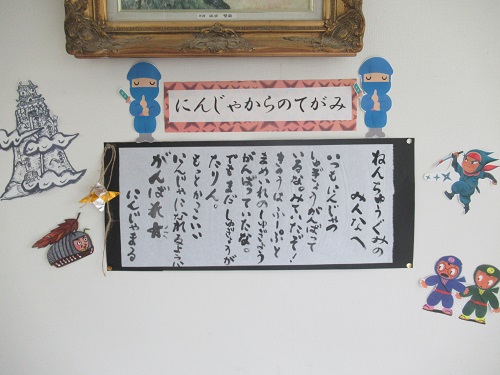 にんじゃからのてがみ
ねんちゅうぐみの
みんなへ
いつもにんじゃの
しゅぎょうがんばって
いるなみていたぞ!
きょうは、ふーぷ、と
まめいれのしゅぎょう
がんばっていたな。
でもまだしゅぎょうが
たりん。
もっとかっこいい
にんじゃになれるように
がんばれ
にんじゃまる